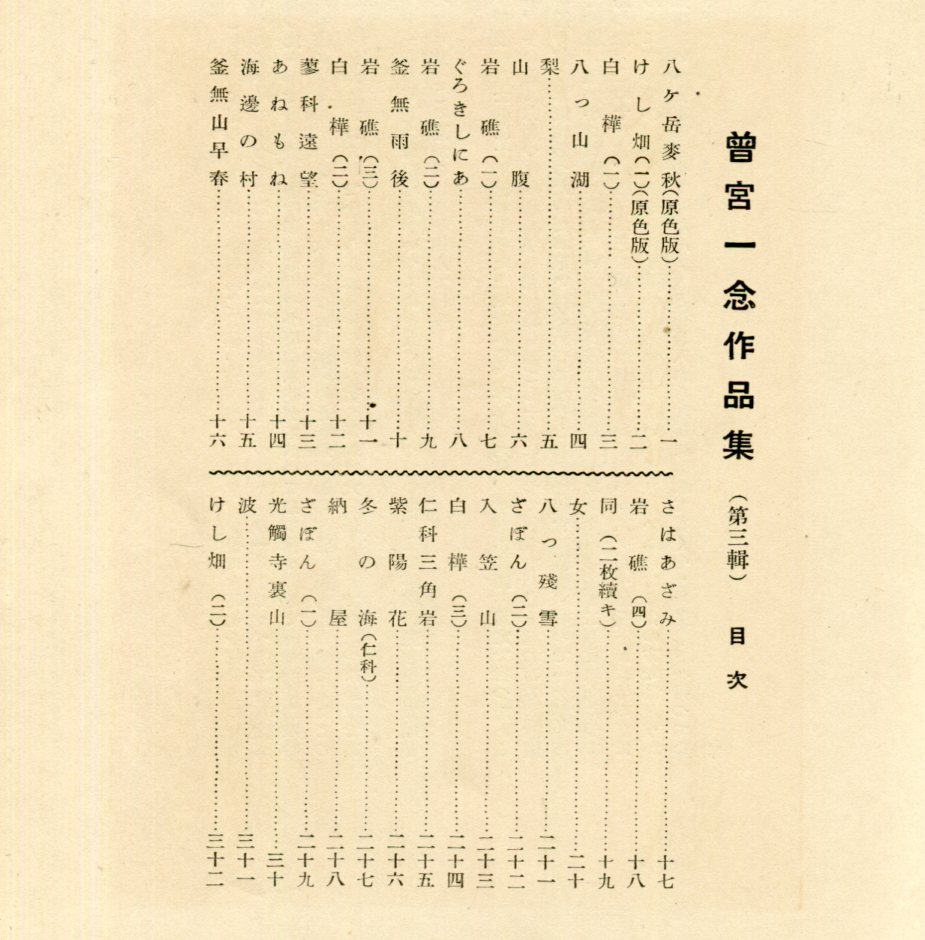 曾宮一念作品集（第三輯）目次
八ヶ岳麥秋（原色版）……一
けし畑（一）（原色版）……二
白樺（一）……三
八つ山湖……四
梨……五
山腹……六
岩礁（一）……七
ぐろきしにあ……八
岩礁（二）……九
釜無雨後……十
岩礁（三）……十一
白樺（二）……十二
蓼科遠望……十三
あねもね……十四
海邊の村……十五
釜無山早春……十六
さはあざみ……十七
岩礁（四）……十八
同（二枚續キ）……十九
女……二十
八つ殘雪……二十一
ざぼん（二）……二十二
入笠山……二十三
白樺（三）……二十四
仁科三角岩……二十五
紫陽花……二十六
冬の海（仁科）……二十七
納屋……二十八
ざぼん（一）……二十九
光觸寺裏山……三十
波……三十一
けし畑（二）……三十二